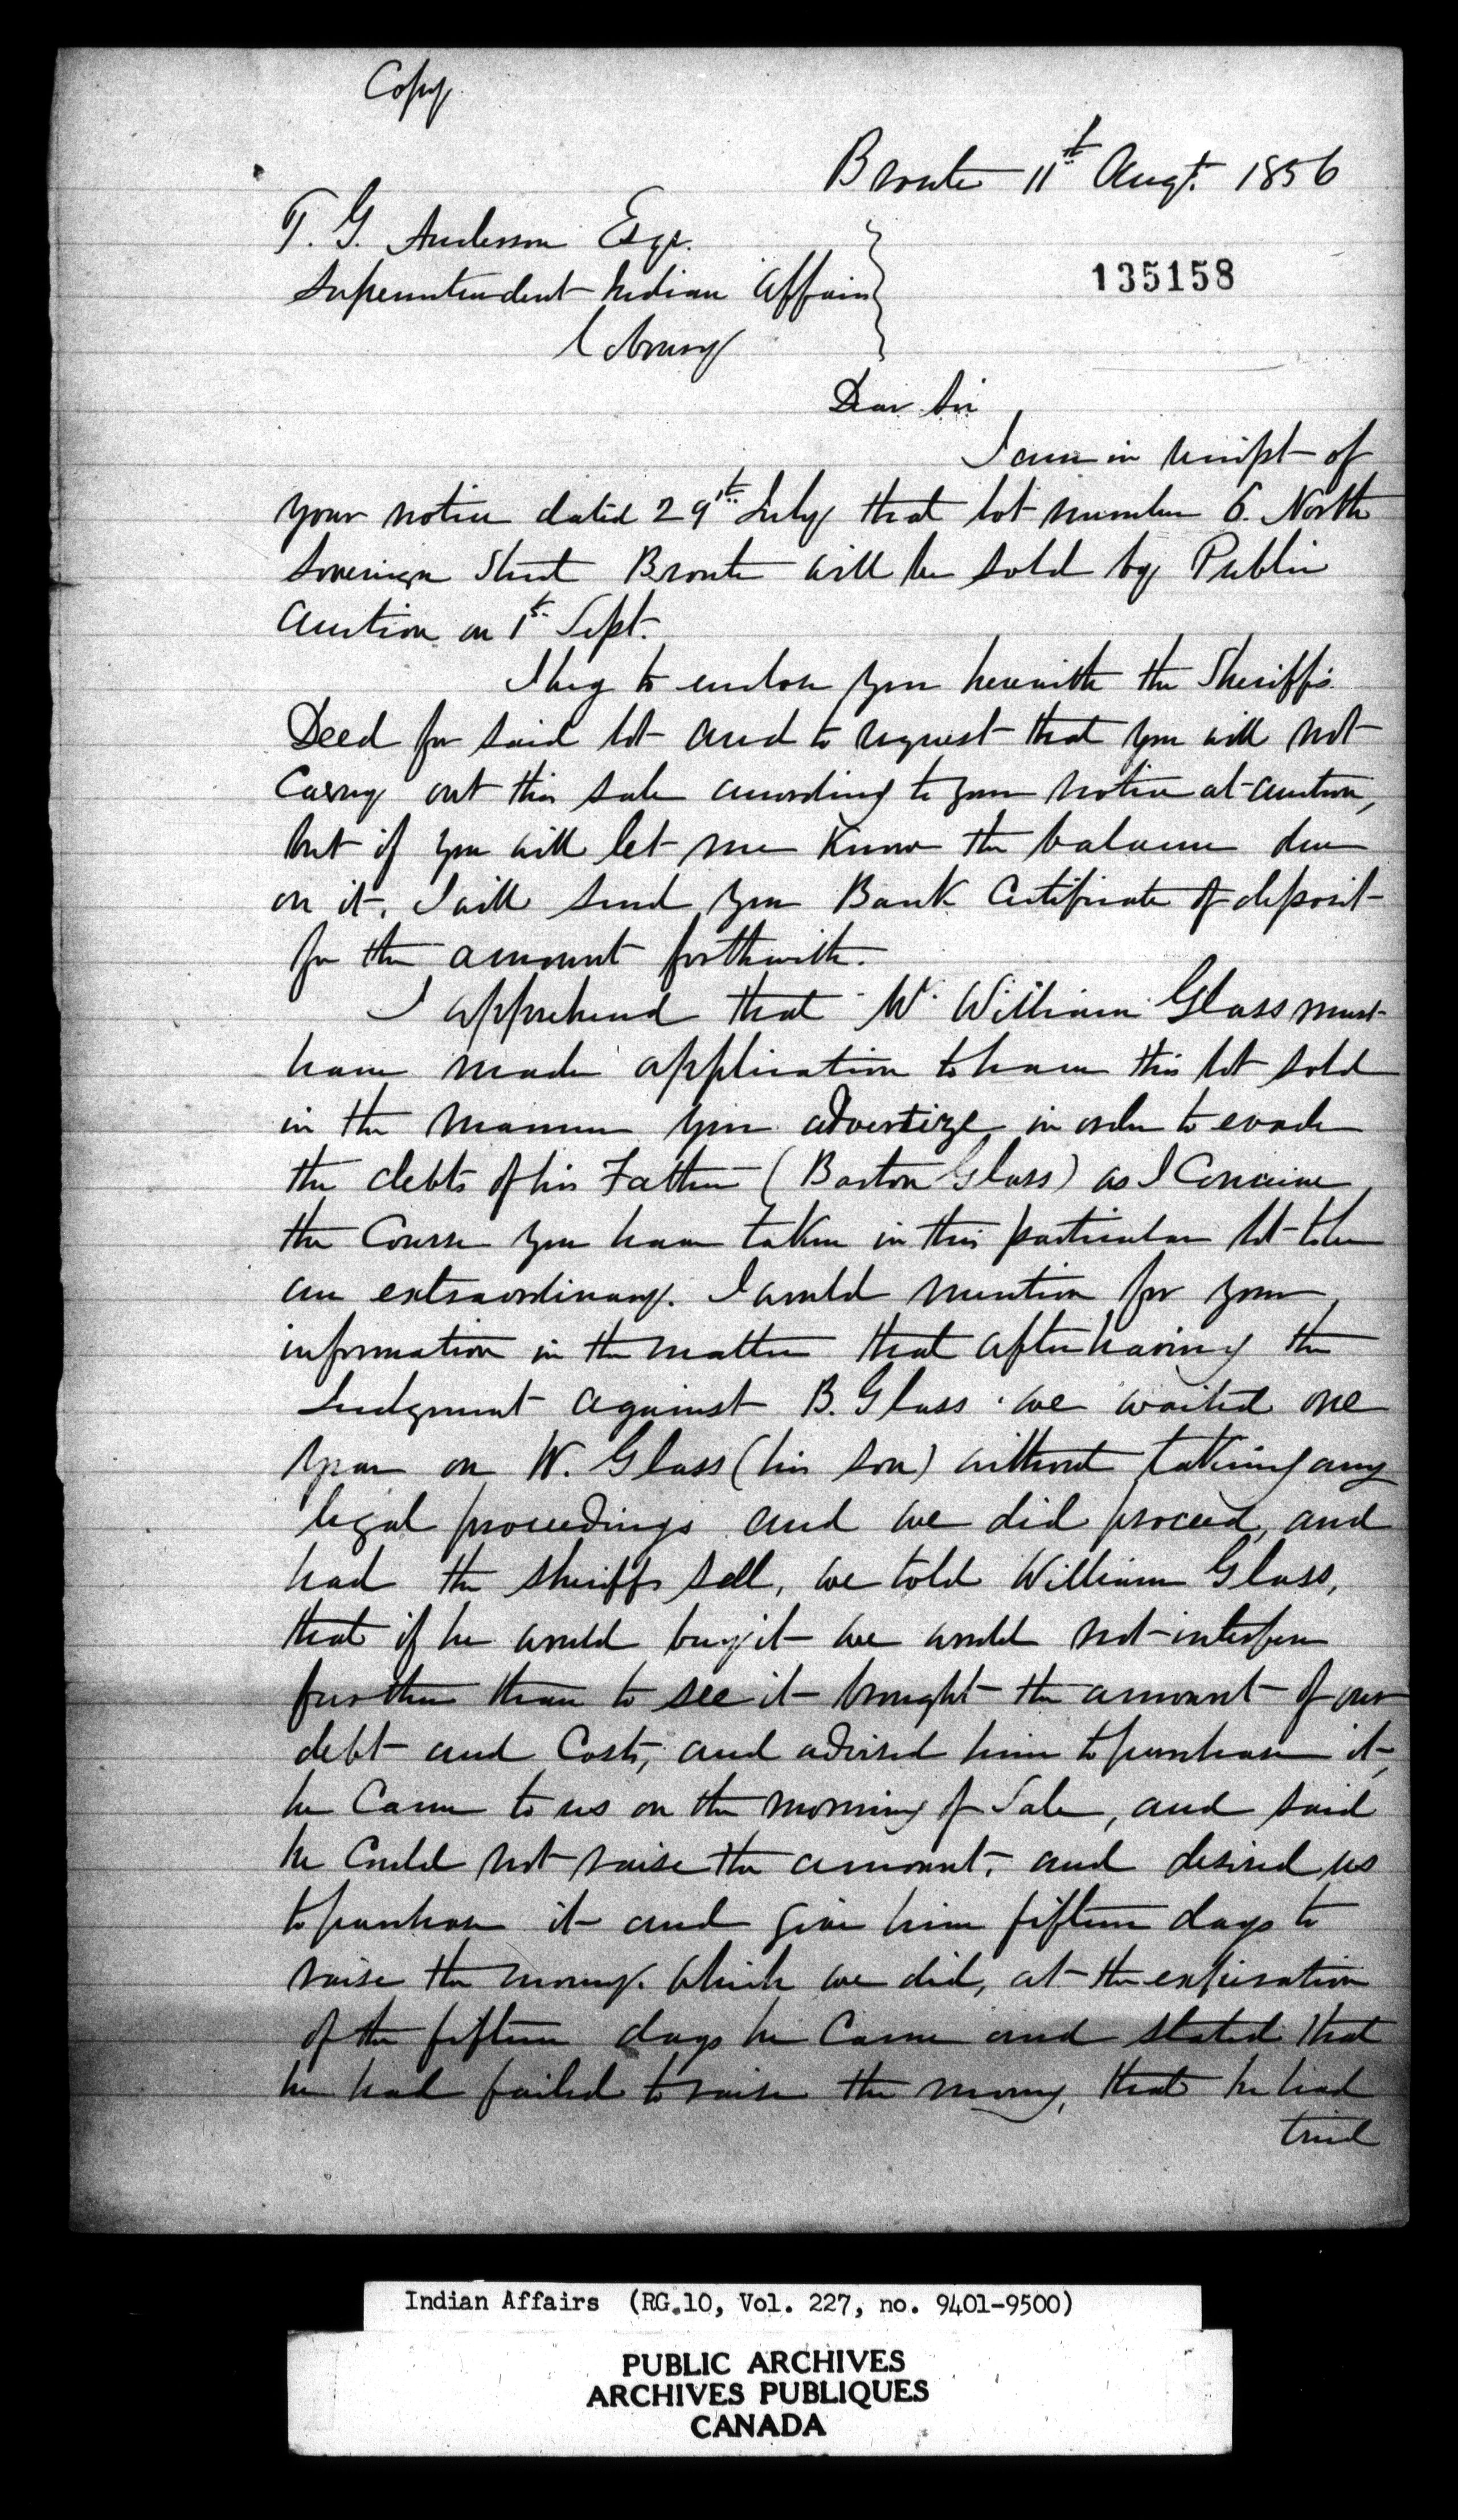 Copy
Bronte 11th Augt. 1856
T. G. Anderson Esqr.
Superintendent Indian Affairs
135158
Cobourg
Dear Sir
I am in receipt of
your notice dated 29th July that lot number 6. North
Sovereign Street Bronte will be sold by Public
Auction on 1st Sept.
I beg to enclose you herewith the Sheriff's
Deed for said lot and to request that you will not
Carry out this sale according to your notice at auction,
but if you will let me Know the balance due
on it, I will send you Bank Certificate of deposit
for the amount forthwith.
I apprehend that Mr William Glass must
have made application to have this lot sold
in the manner you advertize in order to evade
the debts of his Father (Barton Glass) as I Conceive
the Course you have taken in this particular lot to be
an extraordinary. I would mention for your
information in the matter that after having the
Judgment against B. Glass we waited one
year on W. Glass (his son) without taking any
legal proceedings and we did proceed, and
had the sheriff sell, we told William Glass,
that if he would buy it we would not interfere
further than to see it brought the amount of our
debt and Costs, and advised him to purchase it,
he Came to us on the morning of Sale, and said
he Could not raise the amount, and desired us
to purchase it and give him fifteen days to
raise the money. Which we did, at the expiration
of the fifteen days he Came and stated that
he had failed to raise the money, that he had
tried
Indian Affairs (RG.10, Vol. 227, no. 9401-9500)
PUBLIC ARCHIVES
ARCHIVES PUBLIQUES
CANADA